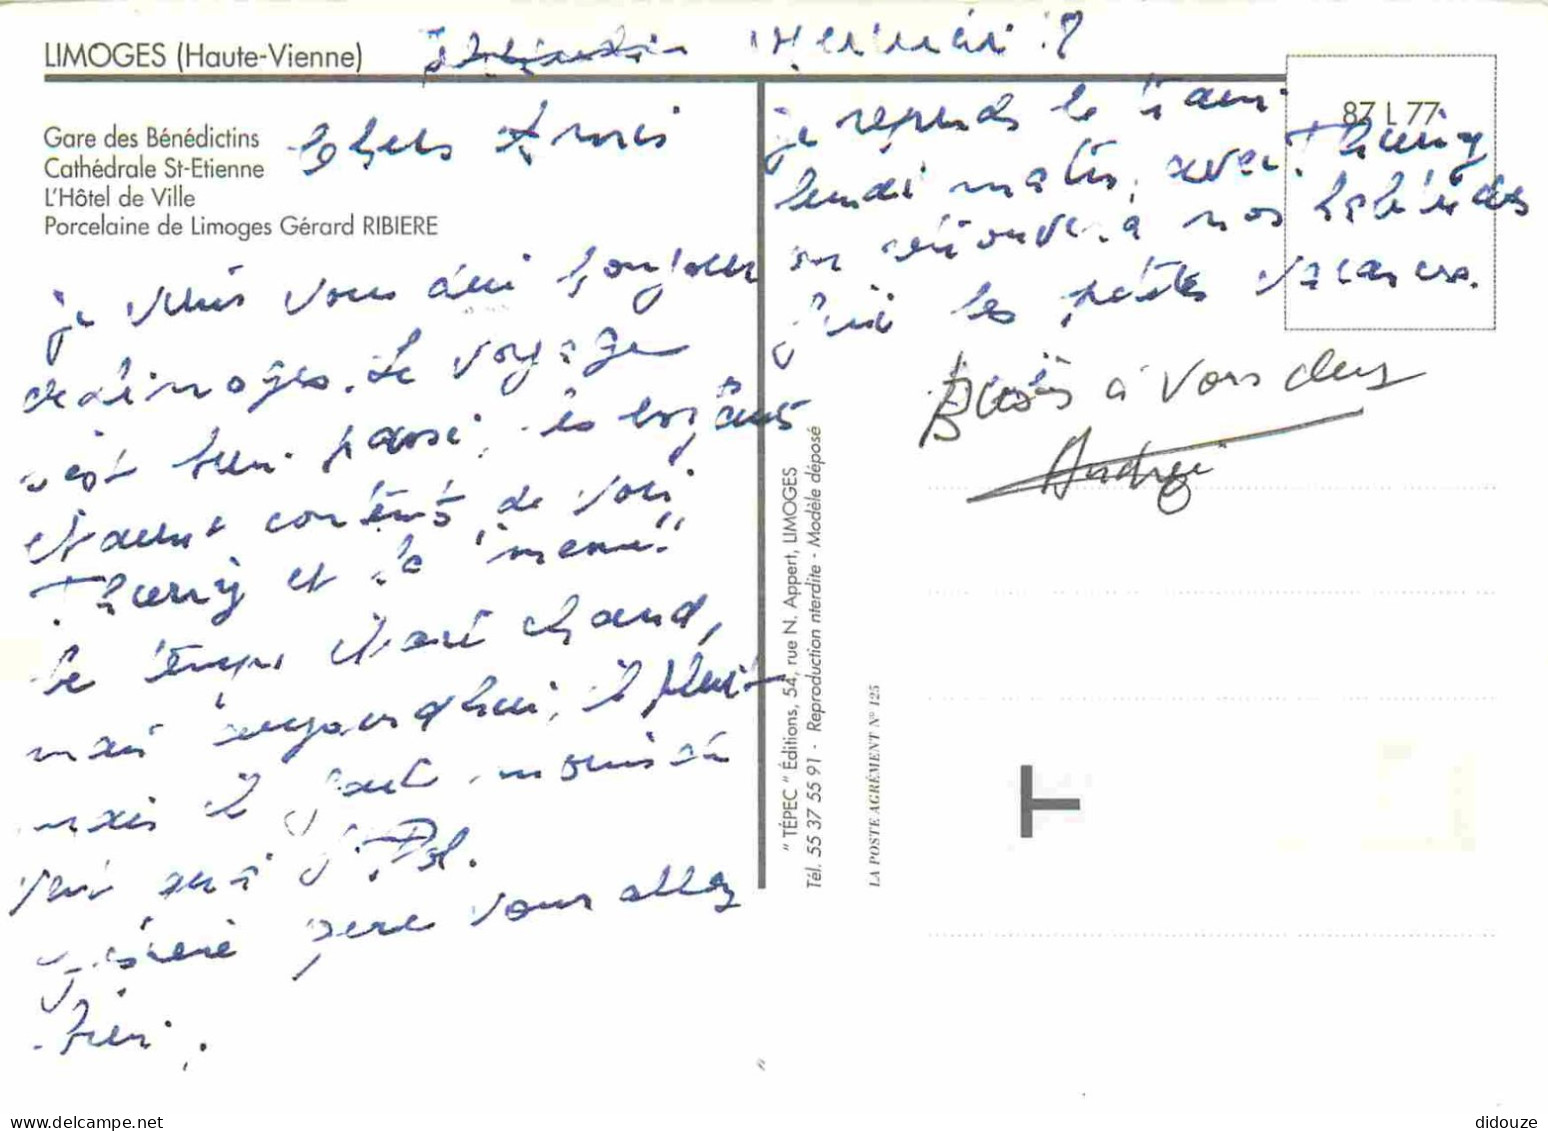 LIMOGES (Haute-Vienne)
Gare des Bénédictins
Cathédrale St-Etienne
L'Hôtel de Ville
Porcelaine de Limoges Gérard RIBIERE
Chers Amis
je vous toujours
de Limoges. Le voyage
s'est bien passé, les enfants
contents de voir
Thierry et la "mémé"
le temps était chaud,
mais aujourd'hui, il pleut
mais il fait moins
J'espère que vous allez
bien.
je reprends le train
lundi matin, avec Thierry
on retrouvera nos habitudes
les petites vacances.
Bises à vous deux
Andrée
87 L 77
" TÉPEC " Éditions, 54, rue N. Appert, LIMOGES
Tél. 55 37 55 91 - Reproduction nterdite - Modèle déposé
LA POSTE AGRÉMENT N° 125
T
didouze